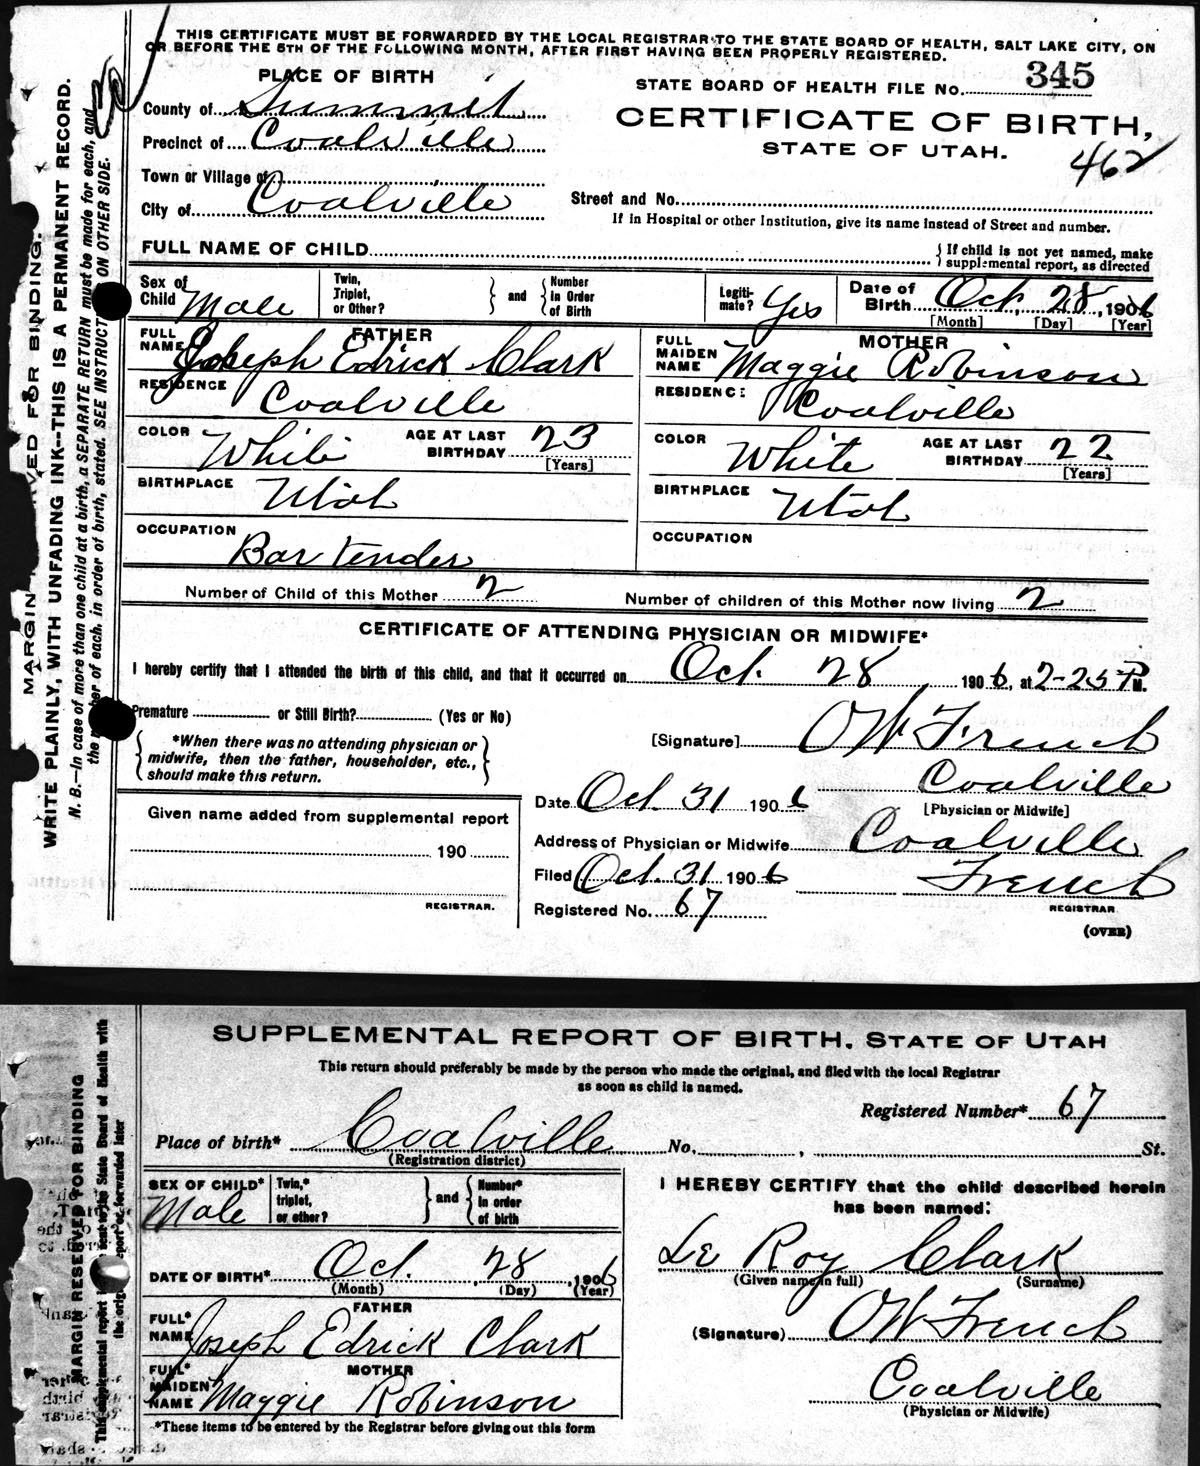 THIS CERTIFICATE MUST BE FORWARDED BY THE LOCAL REGISTRAR TO THE STATE BOARD OF HEALTH, SALT LAKE CITY, ON
OR BEFORE THE 5TH OF THE FOLLOWING MONTH, AFTER FIRST HAVING BEEN PROPERLY REGISTERED.
PLACE OF BIRTH
STATE BOARD OF HEALTH FILE No. 345
County of Summit
CERTIFICATE OF BIRTH,
Precinct of Coalville
STATE OF UTAH.
462
Town or Village of
City of Coalville
Street and No.
If in Hospital or other Institution, give its name instead of Street and number.
FULL NAME OF CHILD
{ If child is not yet named, make
supplemental report, as directed
Sex of Child Male
Twin, Triplet, or Other? } and { Number in Order of Birth
Legiti-mate? Yes
Date of Birth Oct. 28, 1906
[Month] [Day] [Year]
FATHER
FULL NAME Joseph Edrick Clark
RESIDENCE Coalville
COLOR White
AGE AT LAST BIRTHDAY 23
[Years]
BIRTHPLACE Utah
OCCUPATION Bar tender
MOTHER
FULL MAIDEN NAME Maggie Robinson
RESIDENCE: Coalville
COLOR White
AGE AT LAST BIRTHDAY 22
[Years]
BIRTHPLACE Utah
OCCUPATION
Number of Child of this Mother 2
Number of children of this Mother now living 2
CERTIFICATE OF ATTENDING PHYSICIAN OR MIDWIFE*
I hereby certify that I attended the birth of this child, and that it occurred on Oct. 28 1906, at 2-25 P M.
Premature or Still Birth? (Yes or No)
*When there was no attending physician or
midwife, then the father, householder, etc.,
should make this return.
[Signature] OW French
Coalville
[Physician or Midwife]
Date Oct. 31 1906
Given name added from supplemental report
190
REGISTRAR.
Address of Physician or Midwife Coalville
Filed Oct. 31 1906 French
REGISTRAR
Registered No. 67
(OVER)
MARGIN RVED FOR BINDING.
WRITE PLAINLY, WITH UNFADING INK--THIS IS A PERMANENT RECORD.
N. B.—In case of more than one child at a birth, a SEPARATE RETURN must be made for each, and
the number of each, in order of birth, stated. SEE INSTRUCT ON OTHER SIDE.
SUPPLEMENTAL REPORT OF BIRTH, STATE OF UTAH
This return should preferably be made by the person who made the original, and filed with the local Registrar
as soon as child is named.
Registered Number* 67
Place of birth* Coalville No. , St.
(Registration district)
SEX OF CHILD* Male
Twin,* triplet, or other? } and { Number* in order of birth
DATE OF BIRTH* Oct. 28, 1906
(Month) (Day) (Year)
FATHER
FULL* NAME Joseph Edrick Clark
MOTHER
FULL* MAIDEN NAME Maggie Robinson
*These items to be entered by the Registrar before giving out this form
I HEREBY CERTIFY that the child described herein
has been named:
Le Roy Clark
(Given name in full) (Surname)
(Signature) OW French
Coalville
(Physician or Midwife)
MARGIN RESERVED FOR BINDING